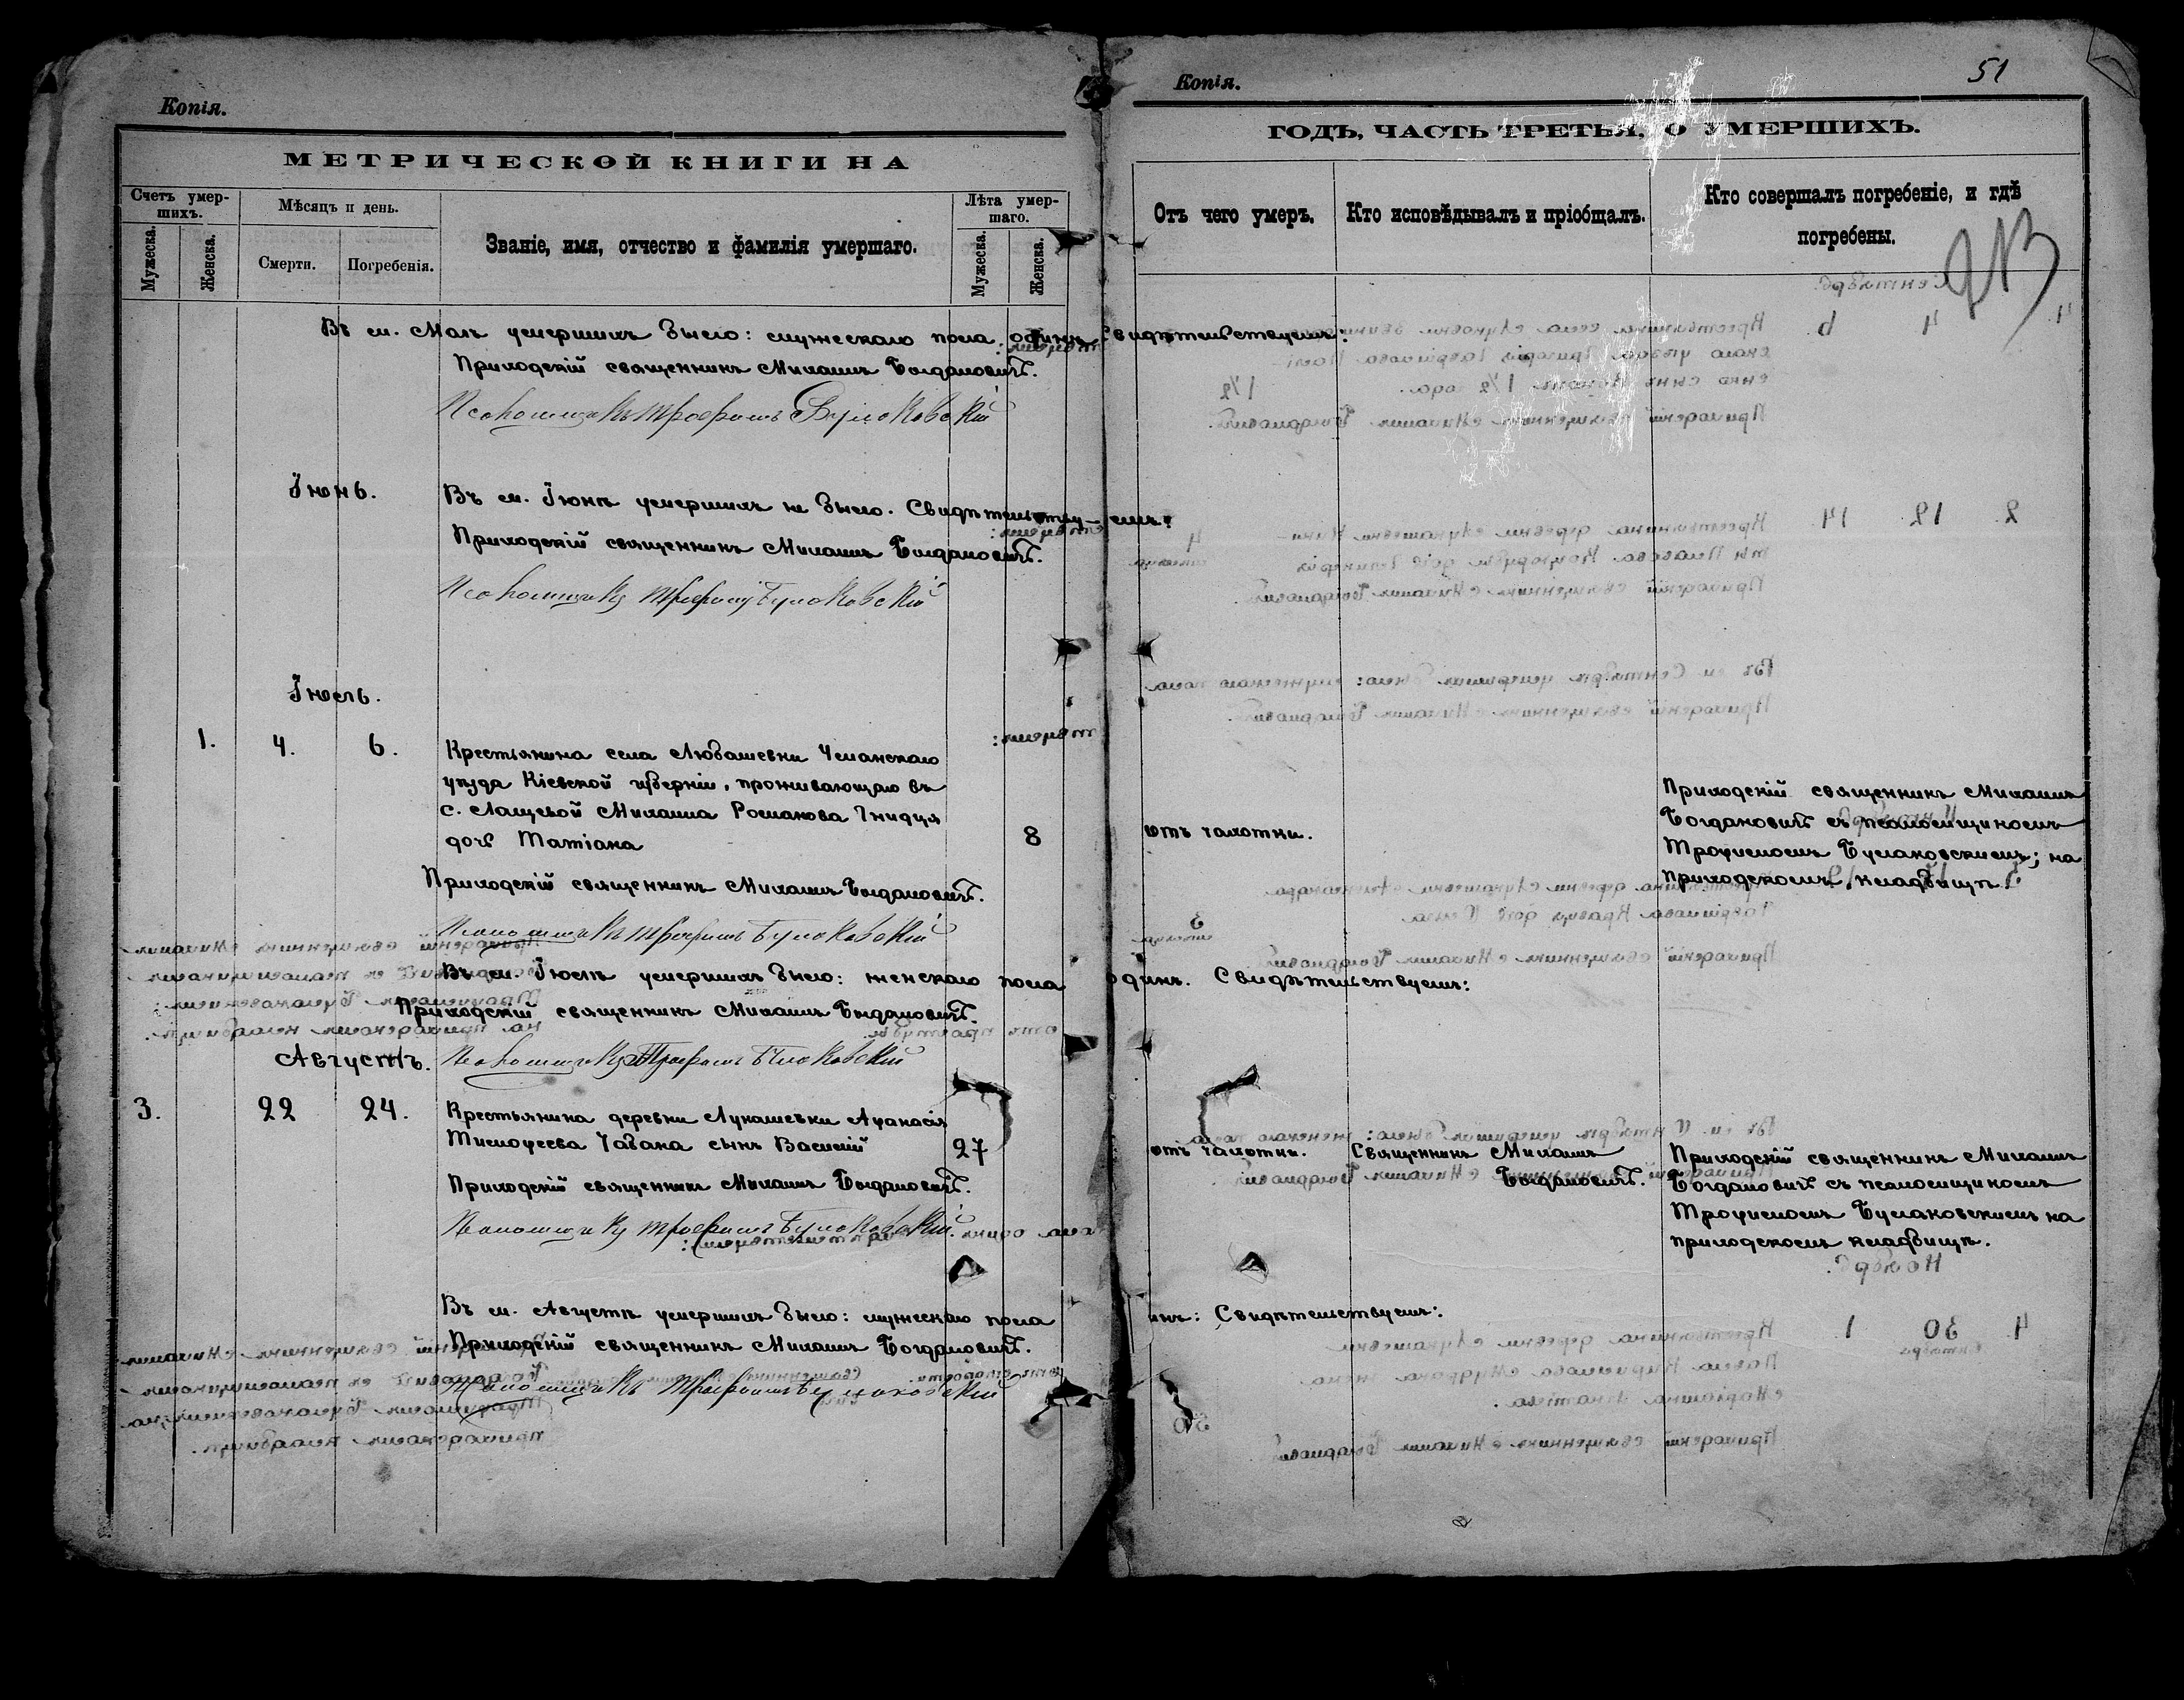 Копія.
МЕТРИЧЕСКОЙ КНИГИ НА
Счетъ умер-
шихъ.
Мѣсяцъ и день.
Званіе, имя, отчество и фамилія умершаго.
Лѣта умер-
шаго.
Мужеска.
Женска.
Смерти.
Погребенія.
Мужеска.
Женска.
Въ м. Маѣ умершихъ было: мужескаго пола одинъ. Свидѣтельствуемъ:
Приходскій священникъ Михаилъ Богдановичъ.
Псаломщикъ Трофимъ Булаковскій
Іюнь.
Въ м. Іюнѣ умершихъ не было. Свидѣтельству-емъ:
Приходскій священникъ Михаилъ Богдановичъ.
Псаломщикъ Трофимъ Булаковскій
Іюль.
1. 4. 6.
Крестьянина села Любашевки Уманскаго
уѣзда Кіевской губерніи, проживающаго въ
с. Лащевой Михаила Романова Гнидця
дочь Татіана 8
Приходскій священникъ Михаилъ Богдановичъ.
Псаломщикъ Трофимъ Булаковскій
Въ м. Іюлѣ умершихъ было: женскаго пола одинъ. Свидѣтельствуемъ:
Приходскій священникъ Михаилъ Богдановичъ.
Августъ.
Псаломщикъ Трофимъ Булаковскій
3. 22 24.
Крестьянина деревни Лукашевки Афанасія
Тимофеева Чабана сынъ Василій 27
Приходскій священникъ Михаилъ Богдановичъ.
Псаломщикъ Трофимъ Булаковскій
Въ м. Августѣ умершихъ было: мужескаго пола
инъ: Свидѣтельствуемъ:
Приходскій священникъ Михаилъ Богдановичъ.
Псаломщикъ Трофимъ Булаковскій
Копія.
51
ГОДЪ, ЧАСТЬ ТРЕТЬЯ, О УМЕРШИХЪ.
Отъ чего умеръ.
Кто исповѣдывалъ и пріобщалъ.
Кто совершалъ погребеніе, и гдѣ
погребены.
отъ чахотки.
Приходскій священникъ Михаилъ
Богдановичъ съ псаломщикомъ
Трофимомъ Булаковскимъ; на
приходскомъ кладбищѣ.
отъ чахотки.
Священникъ Михаилъ
Богдановичъ.
Приходскій священникъ Михаилъ
Богдановичъ съ псаломщикомъ
Трофимомъ Булаковскимъ на
приходскомъ кладбищѣ.